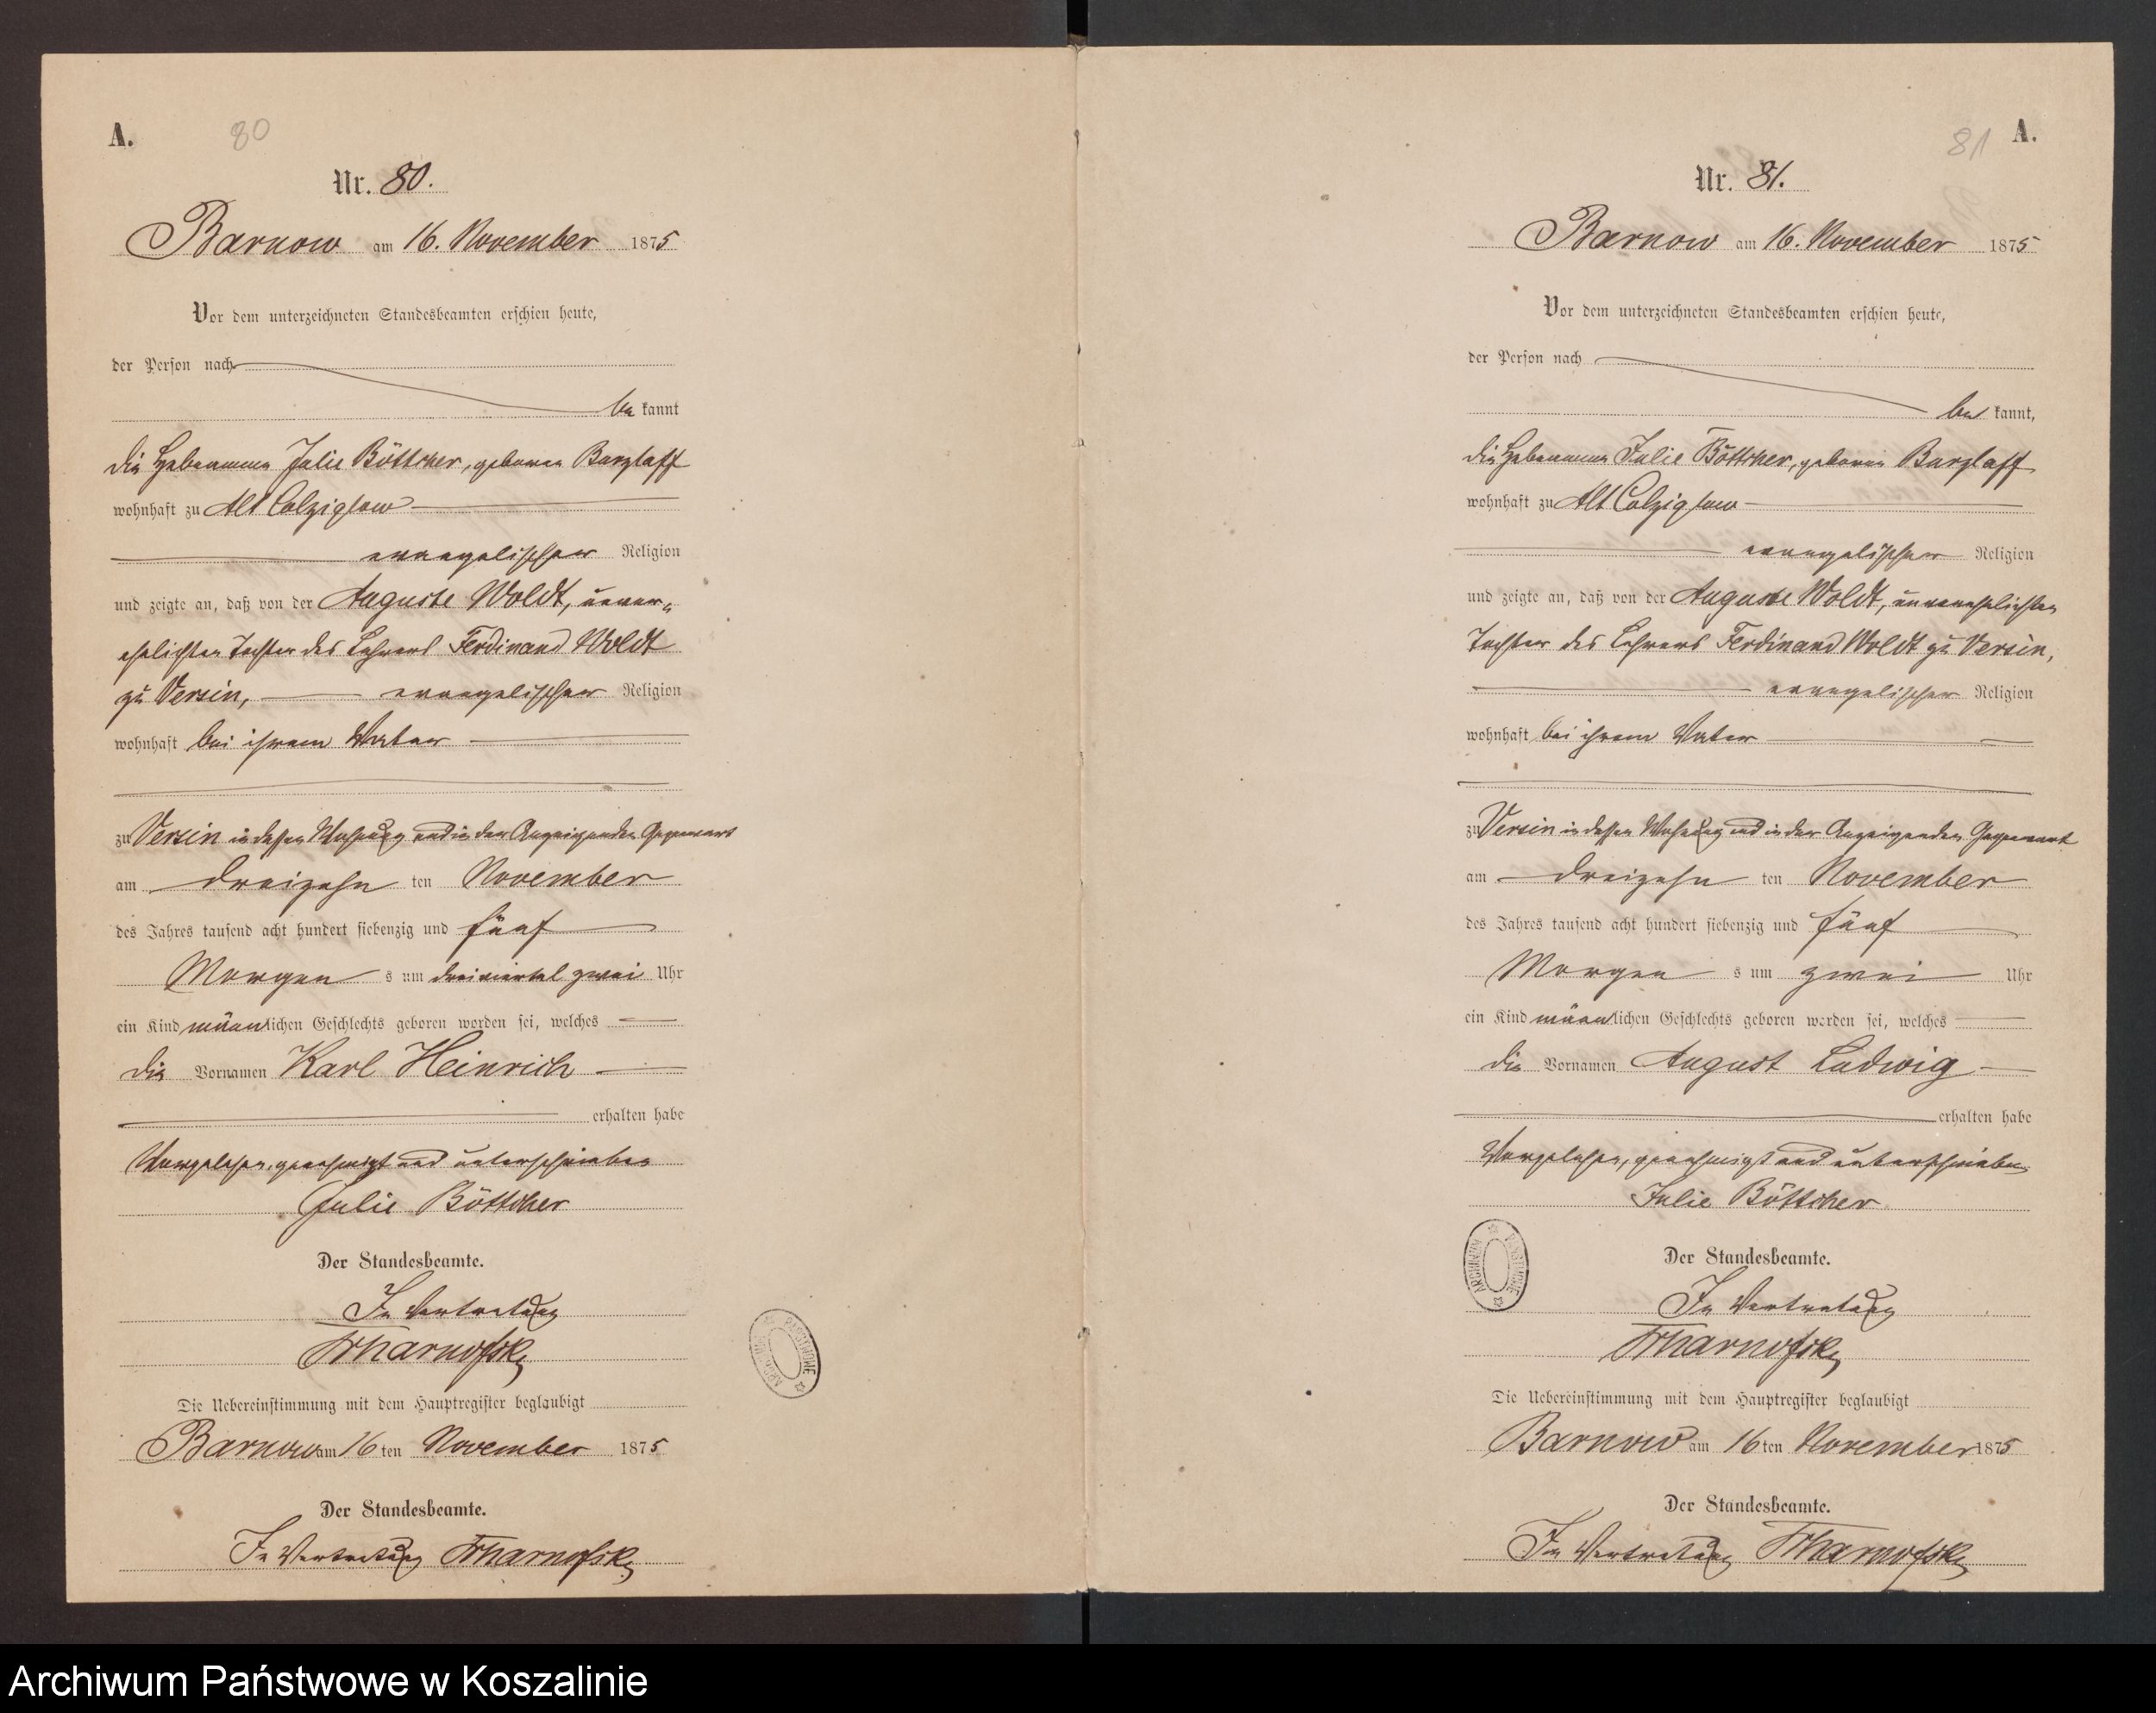 A.
80
Nr. 80.
Barnow am 16. November 1875
Vor dem unterzeichneten Standesbeamten erschien heute,
der Person nach
be kannt
die Hebamme Julie Böttcher, geborene Barzlaff
wohnhaft zu Alt Colziglow
evangelischer Religion
und zeigte an, daß von der Auguste Woldt, unver-
ehelichten Tochter des Lehrers Ferdinand Woldt
zu Versin, evangelischer Religion
wohnhaft bei ihrem Vater
zu Versin in dessen Wohnung und in der Anzeigenden Gegenwart
am dreizehn ten November
des Jahres tausend acht hundert siebenzig und fünf
Morgen s um dreiviertel zwei Uhr
ein Kind männlichen Geschlechts geboren worden sei, welches
die Vornamen Karl Heinrich
erhalten habe
Vorgelesen, genehmigt und unterschrieben
Julie Böttcher
Der Standesbeamte.
In Vertretung
Die Uebereinstimmung mit dem Hauptregister beglaubigt
Barnow am 16 ten November 1875
Der Standesbeamte.
In Vertretung
ARCHIWUM PAŃSTWOWE
81
A.
Nr. 81.
Barnow am 16. November 1875
Vor dem unterzeichneten Standesbeamten erschien heute,
der Person nach
be kannt,
die Hebamme Julie Böttcher, geborene Barzlaff
wohnhaft zu Alt Colziglow
evangelischer Religion
und zeigte an, daß von der Auguste Woldt, unverehelichten
Tochter des Lehrers Ferdinand Woldt zu Versin,
evangelischer Religion
wohnhaft bei ihrem Vater
zu Versin in dessen Wohnung und in der Anzeigenden Gegenwart
am dreizehn ten November
des Jahres tausend acht hundert siebenzig und fünf
Morgen s um zwei Uhr
ein Kind männlichen Geschlechts geboren worden sei, welches
die Vornamen August Ludwig
erhalten habe
Vorgelesen, genehmigt und unterschrieben
Julie Böttcher
Der Standesbeamte.
In Vertretung
Die Uebereinstimmung mit dem Hauptregister beglaubigt
Barnow am 16 ten November 1875
Der Standesbeamte.
In Vertretung
ARCHIWUM PAŃSTWOWE
Archiwum Państwowe w Koszalinie